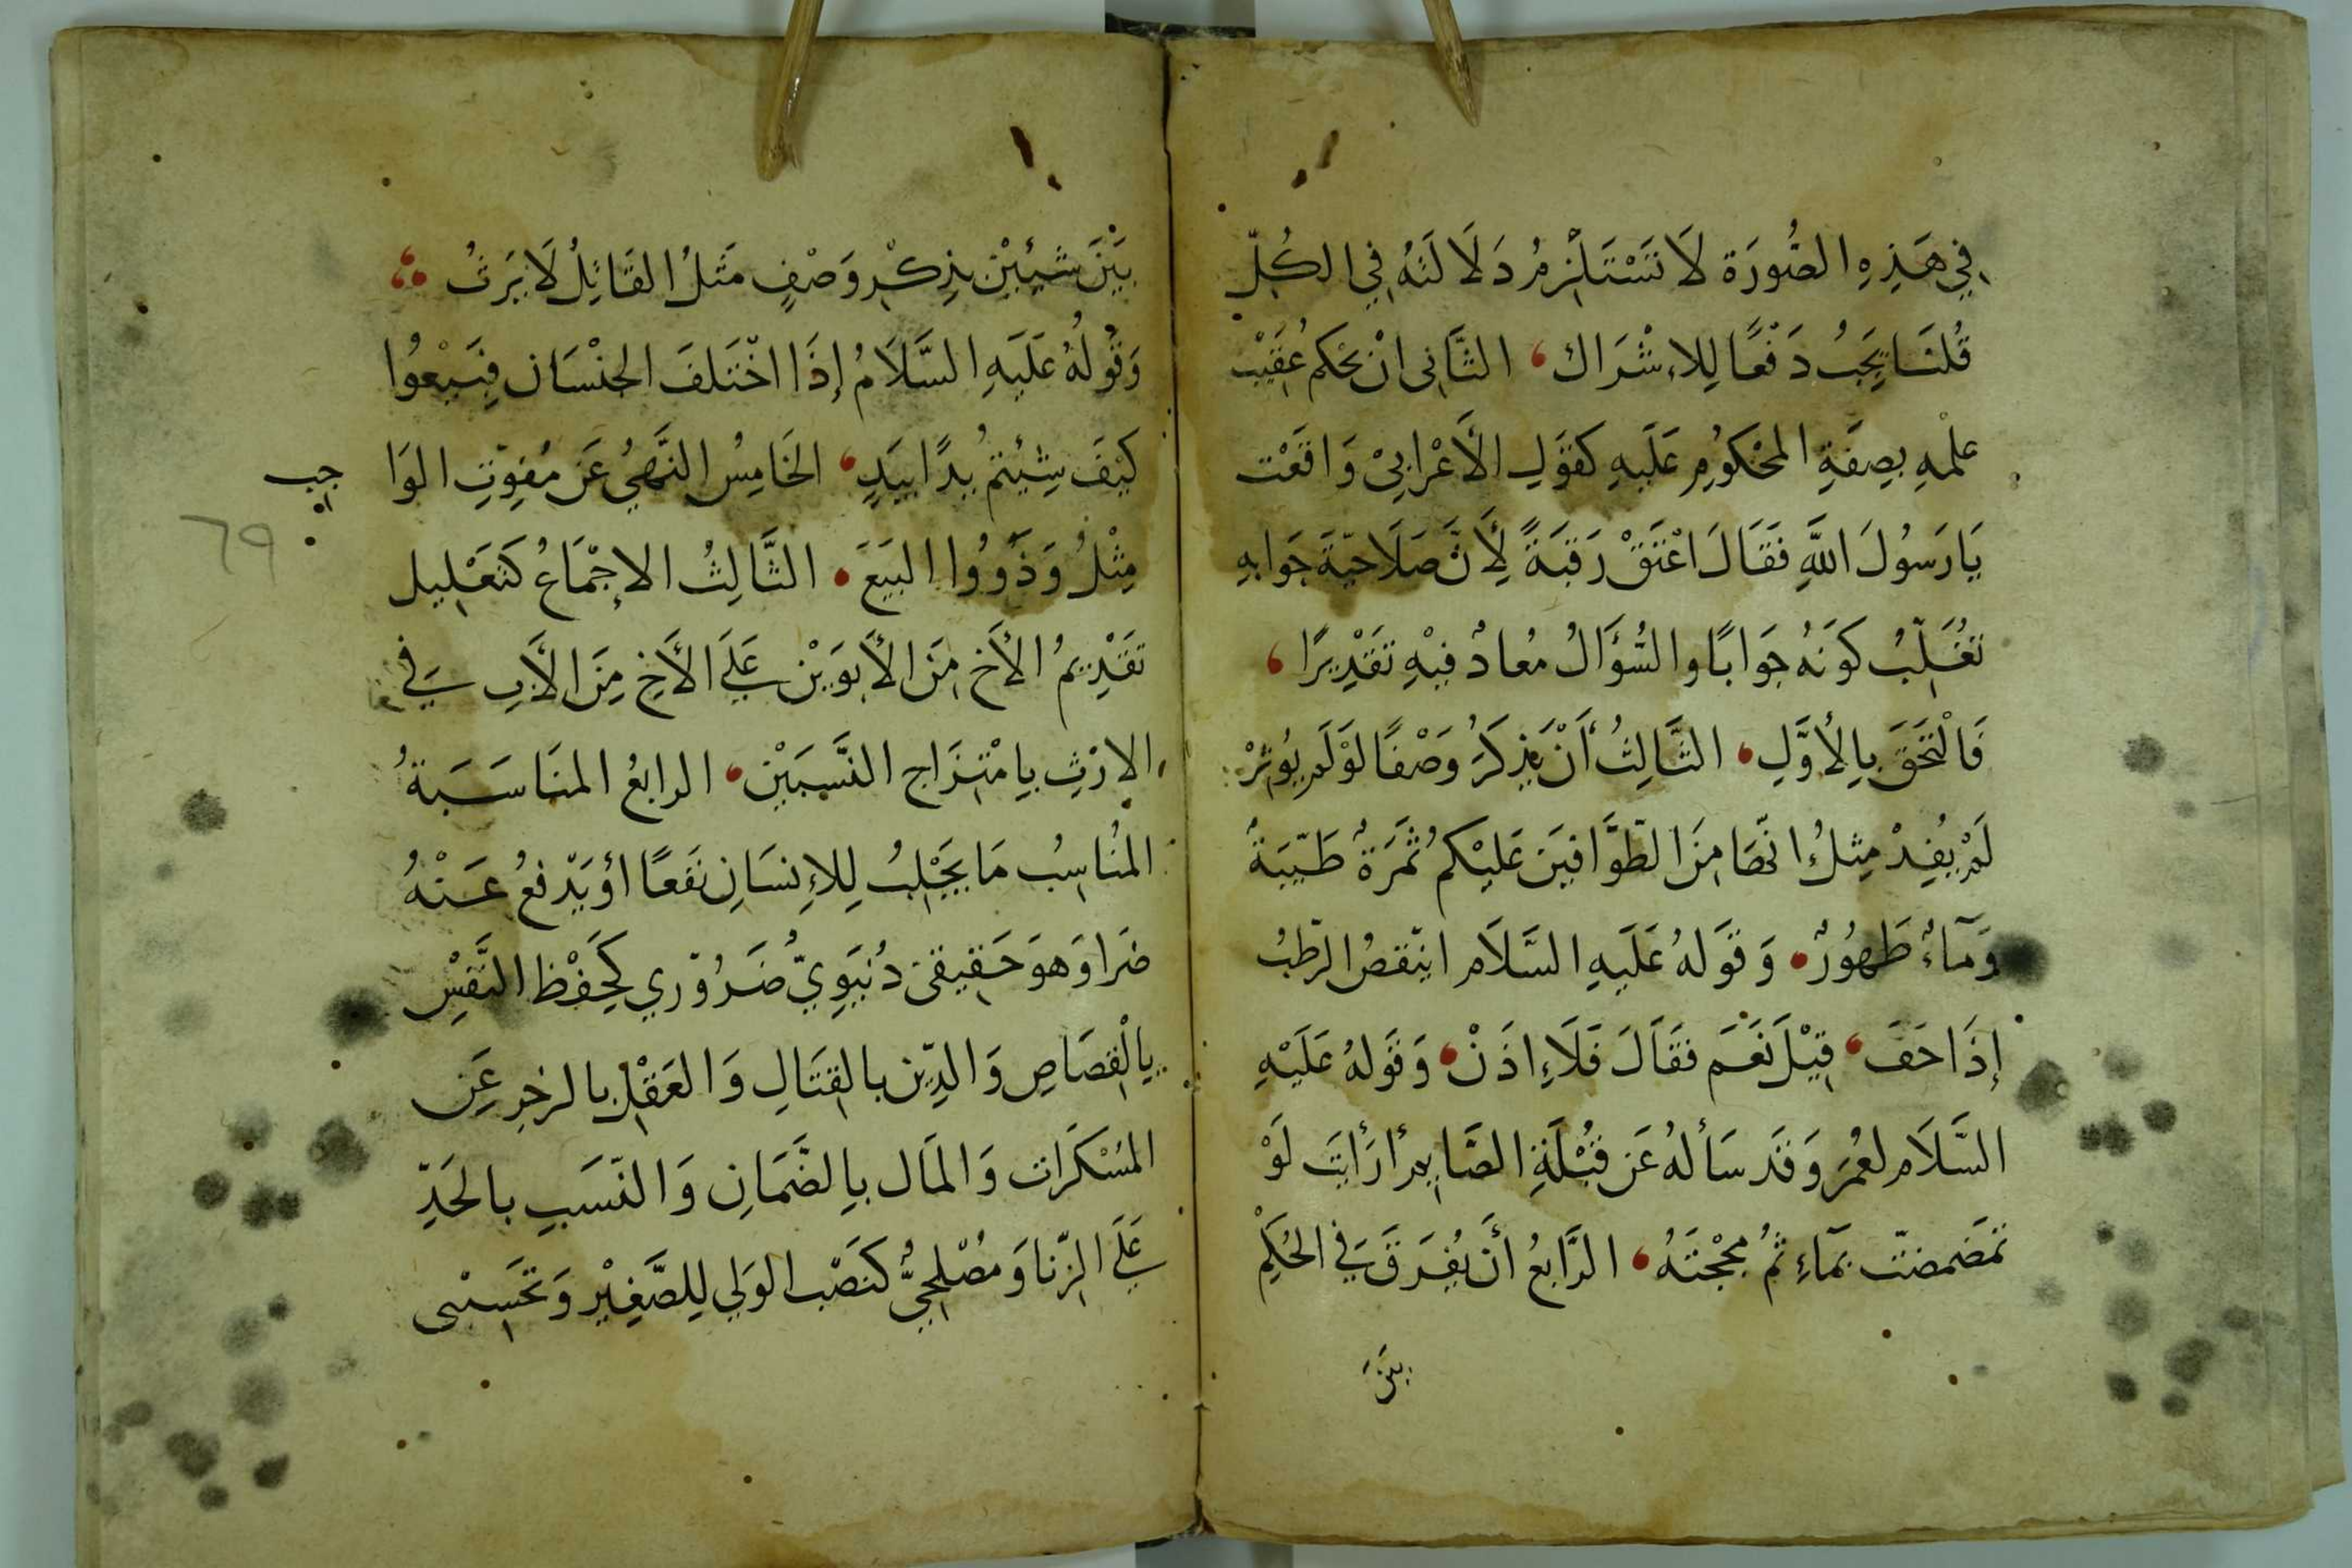 فِي هَذِهِ الصُّورَة لَا تَسْتَلْزِمُ دَلَالَتَهُ فِي الكُلِّ
قُلْنَا يَجِبُ دَفْعًا لِلاِشْرَاك، الثَّانِي انْ يَحْكم عُقَيْبَ
عِلْمِهِ بِصِفَةِ المَحْكُومِ عَلَيهِ كَقَوَلِ الأَعْرَابِيْ وَاقَعْت
يَا رَسُولَ اللَّهِ فَقَالَ اعْتَقْ رَقَبَةً لِأَنَّ صَلَاحِيَّةَ جَوَابِهِ
تُغَلِّبُ كَونَهُ جَوَابًا والسُّؤَالُ مُعادٌ فِيْهِ تَقْدِيْرًا،
فَالْتَحَقَ بِالأَوَّلِ، الثَّالِثُ أَنْ يَذِكَرُ وَصْفًا لَوْ لَم يُوثرْ
لَمْ يُفِيدْ مِثلُ انّهَا مِنَ الطَّوَّافِينَ عَلَيْكم ثَمَرَةٌ طَيِّبَةٌ
وَمَآءٌ طَهُورٌ، وَقَولهُ عَلَيهِ السَّلَام اينقصُ الرّطبُ
إِذَا حَفَ، قِيْلَ نَعَم فَقَالَ فَلَاءِ اذَنْ، وَقَولهُ عَلَيْهِ
السَّلَام لعُمَرَ وَقَد سَألهُ عَن قُبْلَةِ الصَّايم أرَأَيتَ لَوْ
تَمَضمضتّ بمَآءِ ثُمُ مجَجْتَهُ، الرَّابعُ أَن يُفرَقَ فِي الحُكِمْ
بَيْنَ
بَيْنَ شَيئَيْن بِذِكْرِ وَصْفٍ مَثَلُ القَاتِلُ لَا يَرَثُ
وَقُولُهُ عَلَيهِ السَّلَامُ إِذَا اخْتَلَفَ الجِنْسَان فَبِيْعُوا
كَيْفَ شِيْئتمُ يَدًا بِيَدٍ، الخَامِسُ النَّهيُ عَن مُفوِّتِ الوَا
جب
69
مِثْلُ وَذَرُوا البَيَعَ، الثَّالِثُ الاِجْمَاعُ كَتَعْلِيل
تَقَدِيمُ الأَخِ مِنَ الأَبَوَيْن عَلَى الأَخِ مِنَ الأَبِ فِي
الاِرْثِ بِامْتِزَاج النَّسَبَيْن، الرابعُ المنَاسَبَةُ
المنُاسِبُ مَا يَجْلِبُ لِلإِنسَانِ نَفعًا أوْ يَدْفعُ عَنْهُ
ضَرَا وَهوَ حَقِيقى دُنيَوِيّ ضَرُوري كَحِفْظ النَّفسْ
بِالْقِصَاصِ وَالدِّين بالقِتَالِ وَالعَقْلِ بالزجرِ عَن
المسْكَرات وَالمَال بِالضَّمَانِ وَالنّسَبِ بالحَدِّ
عَلَى الزِّنَا وَمصْلحيُّ كَنَصْب الوَلي لِلصَّغِيْر وَتحسِيْنى